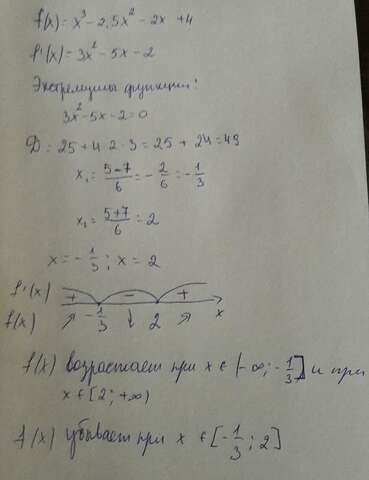 f(x) = x³ - 2,5x² - 2x + 4
f'(x) = 3x² - 5x - 2
Экстремумы функции:
3x² - 5x - 2 = 0
D = 25 + 4·2·3 = 25 + 24 = 49
x₁ = (5-7)/6 = -2/6 = -1/3
x₁ = (5+7)/6 = 2
x = -1/3 ; x = 2
f'(x) + - +
f(x) ↗ -1/3 ↓ 2 ↗ x
f(x) возрастает при x ∈ [-∞; -1/3] и при
x ∈ [2; +∞)
f(x) убывает при x ∈ [-1/3; 2]